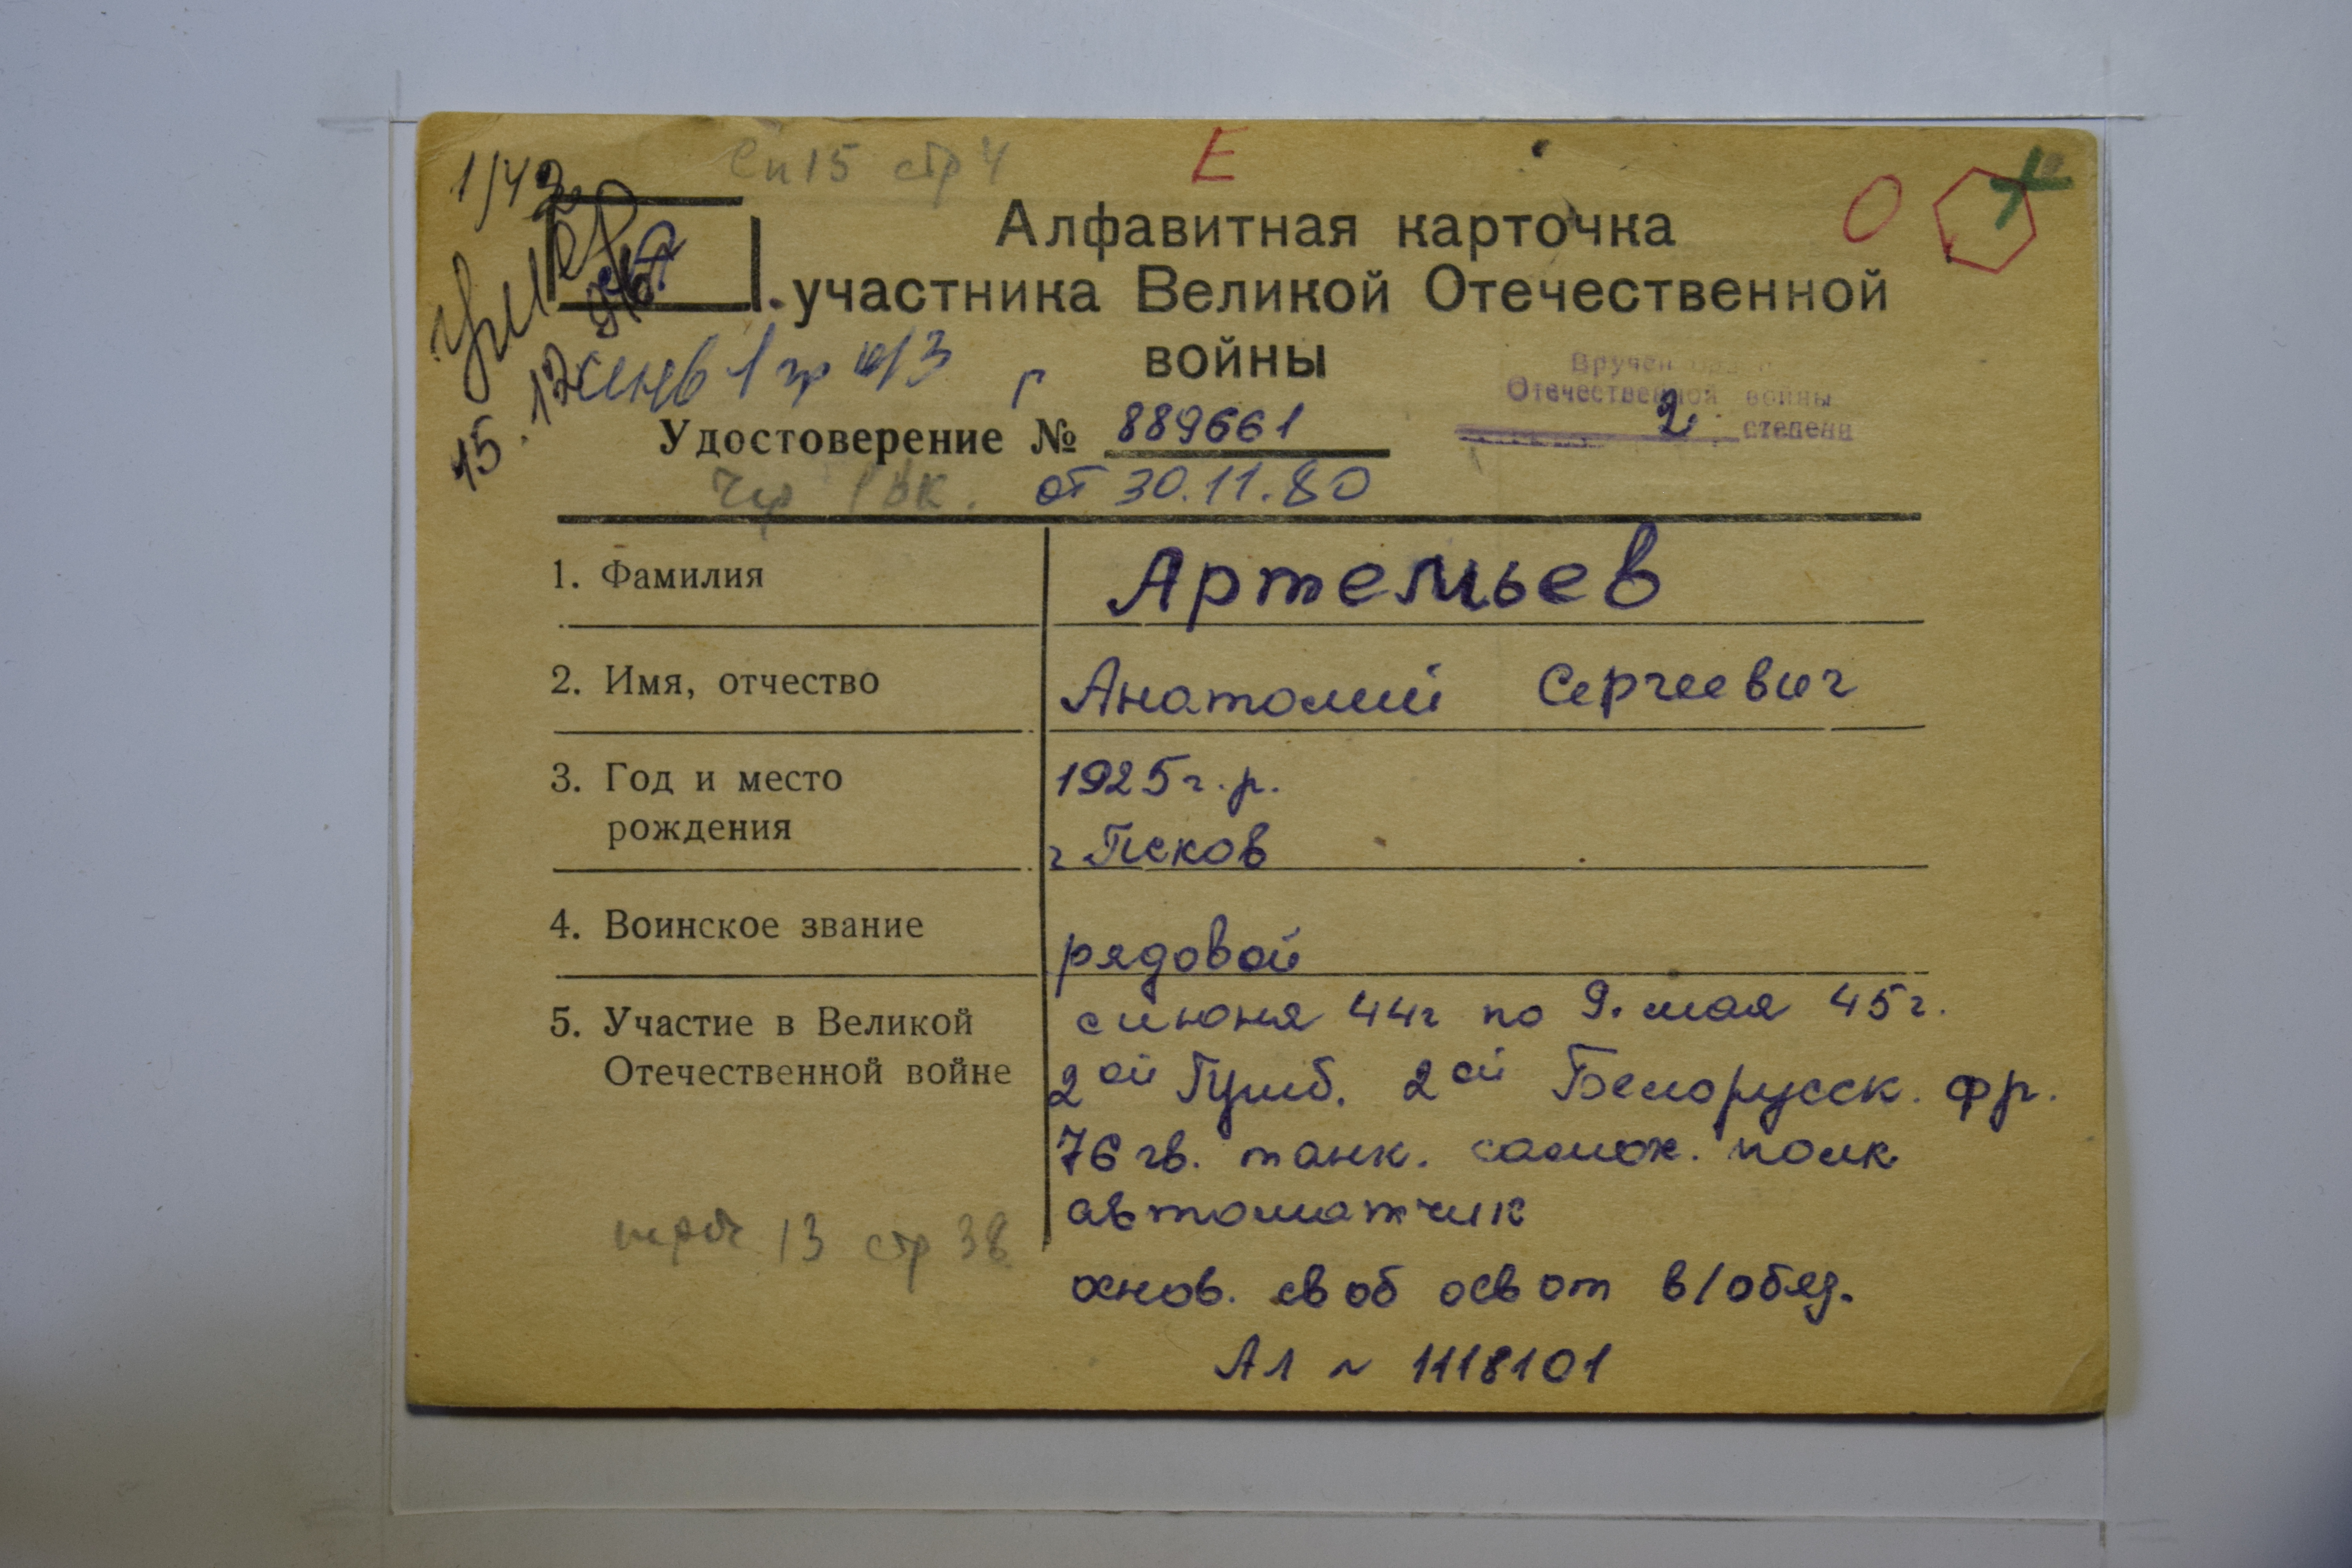 Сп 15 стр 4
Е
1/42
О
Алфавитная карточка
участника Великой Отечественной
войны
Умер
15.12.96
инв 1 гр
Вручен орден
Отечественной войны
2 степени
Удостоверение № Г 889661
от 30.11.80
1. Фамилия Артемьев
2. Имя, отчество Анатолий Сергеевич
3. Год и место 1925 г. р.
рождения г Псков
4. Воинское звание рядовой
5. Участие в Великой с июня 44г по 9. мая 45г.
Отечественной войне 2ой Приб. 2ой Белорусск. фр.
76 гв. танк. самох. полк
автоматчик
13 стр 38
основ. своб осв от в/обяз.
Ал № 1118101